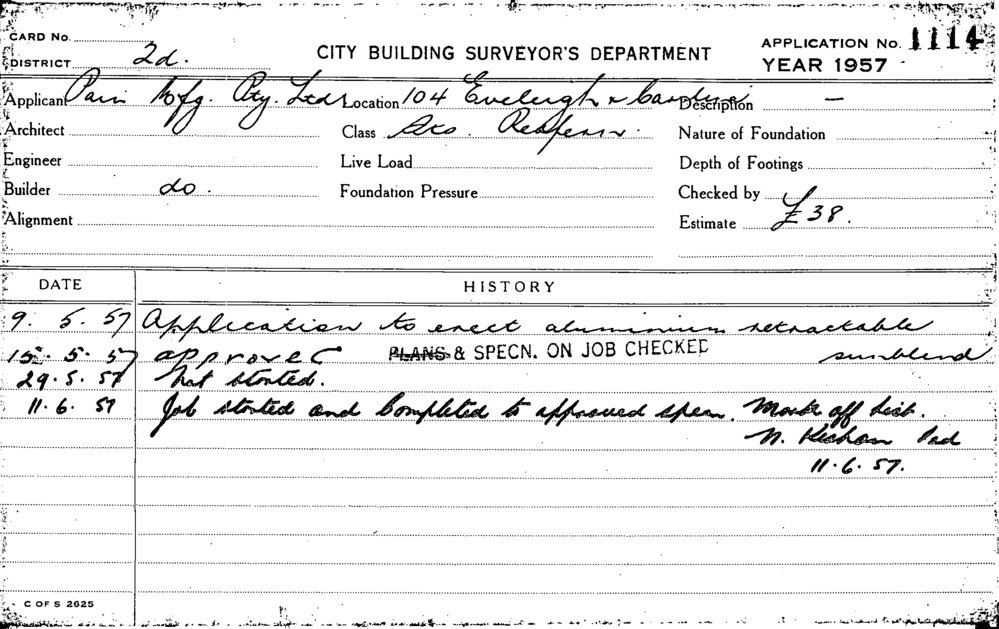 CARD No.
DISTRICT 2d.
CITY BUILDING SURVEYOR'S DEPARTMENT
APPLICATION No. 1114
YEAR 1957
Applicant Pain Mfg. Pty. Ltd Location 104 Eveleigh & Description —
Architect Class Nature of Foundation
Engineer Live Load Depth of Footings
Builder do. Foundation Pressure Checked by
Alignment Estimate £38.
DATE HISTORY
9. 5. 57 Application to erect aluminium retractable
15. 5. 57 approved PLANS & SPECN. ON JOB CHECKED sunblind
29. 5. 57 Not started.
11. 6. 57 Job started and Completed to approved specn. Mark off list.
11. 6. 57.
C OF S 2625